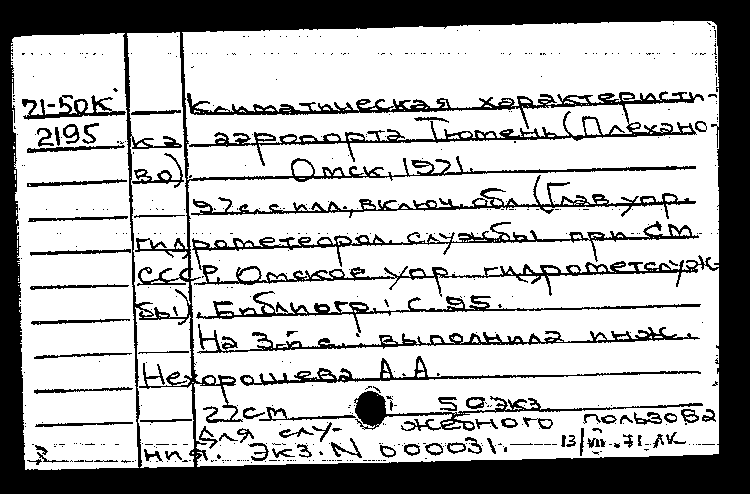 71-50К Климатическая характеристи-
2195 ка аэропорта Тюмень (Плехано-
во). Омск, 1971.
97с. с илл., включ. обл (Глав упр.
гидрометеорол. службы при СМ
СССР. Омское упр. гидрометслуж-
бы). Библиогр.: с. 95.
На 3-й с.: выполнила инж.
Нехорошева А.А.
22cm 50экз
Для слу- жебного пользова
ния. Экз. N 000031. 13/VII.71 ЛК